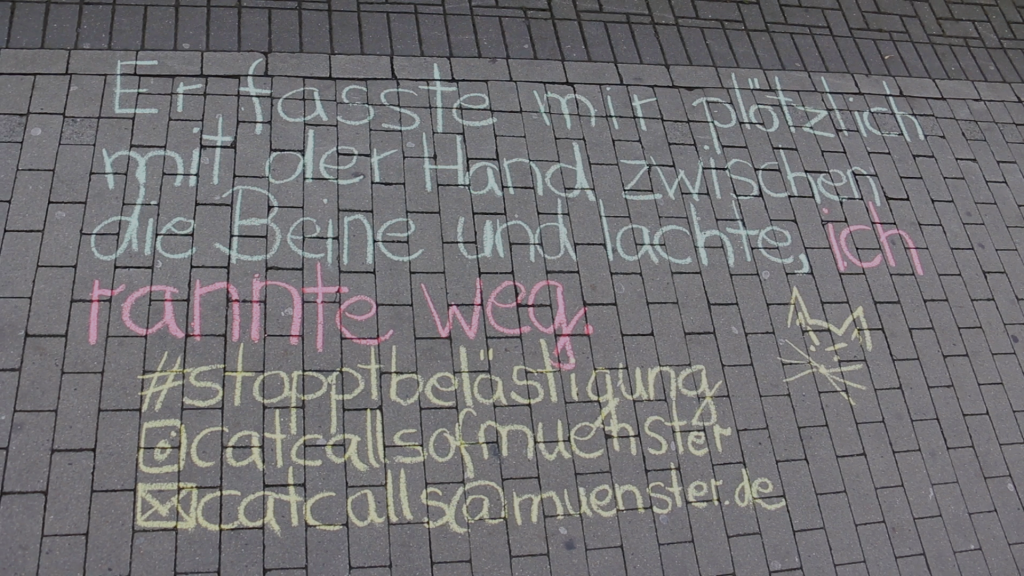 Er fasste mir plötzlich
mit der Hand zwischen
die Beine und lachte, ich
rannte weg.
#stopptbelästigung
catcallsofmuenster
catcalls@muenster.de